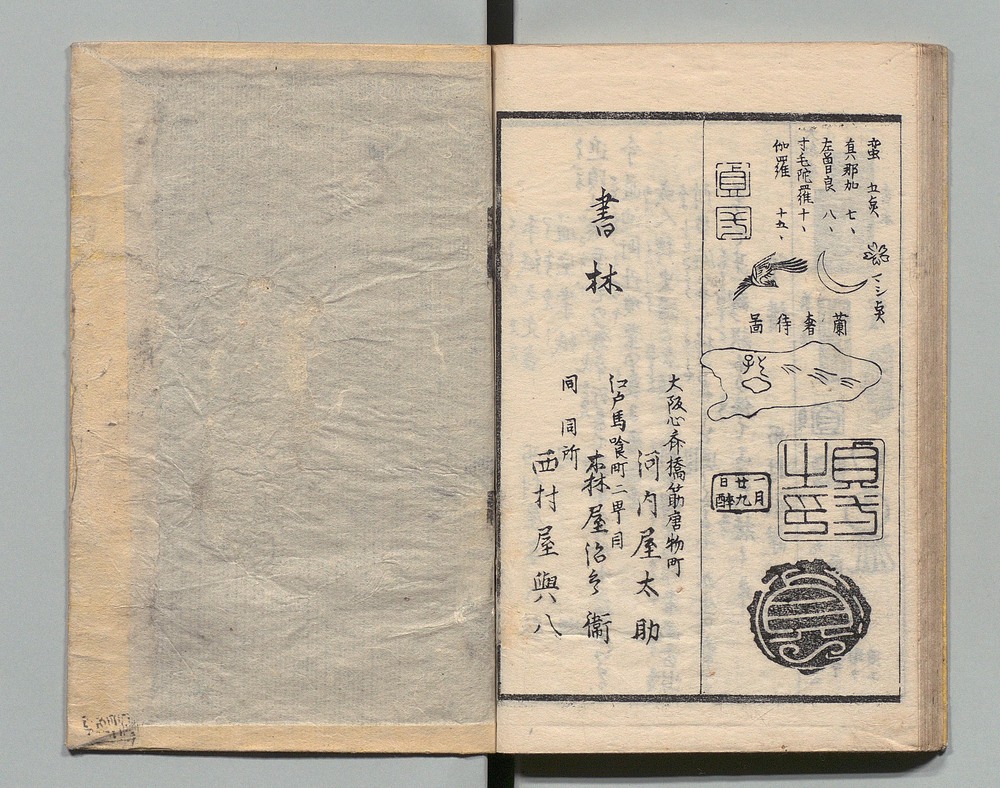 蛮 五貞
真那加 七、
左曽良 八、
寸毛陀羅 十、
伽羅 十五、
貞
蘭奢待圖
貞
之印
一月
廿九
日酔
貞
書林
大阪心斎橋筋唐物町
河内屋太助
江戸馬喰町二甼目
本林屋治兵衞
同同所
西村屋與八